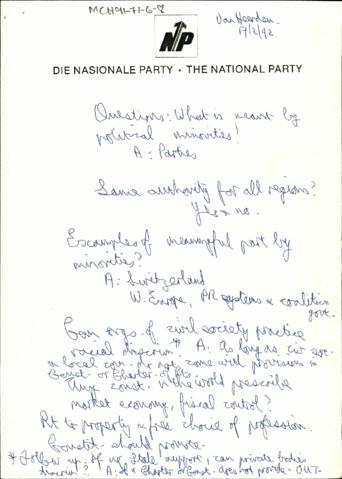 MCH91-71-6-8
Van Heerden.
17/2/92.
NP
DIE NASIONALE PARTY · THE NATIONAL PARTY
Questions: What is meant by
political minorities?
A: Parties
Same authority for all regions?
Yes & no.
Examples of meaningful part by
minorities?
A: Switzerland
W. Europe, PR systems & coalition
govt.
Can orgs. of civil society practice
racial discrim. * A. As long as civ soc.
& local com. do not come with provisions in
Const. or Charter of Rts.
Any const. in the world prescribe
market economy, fiscal control?
Rt to property & free choice of profession.
Constit. should promote.
* Follow up: If no State support, can private bodies
discrim? A: If Charter or Const. does not provide - OUT.